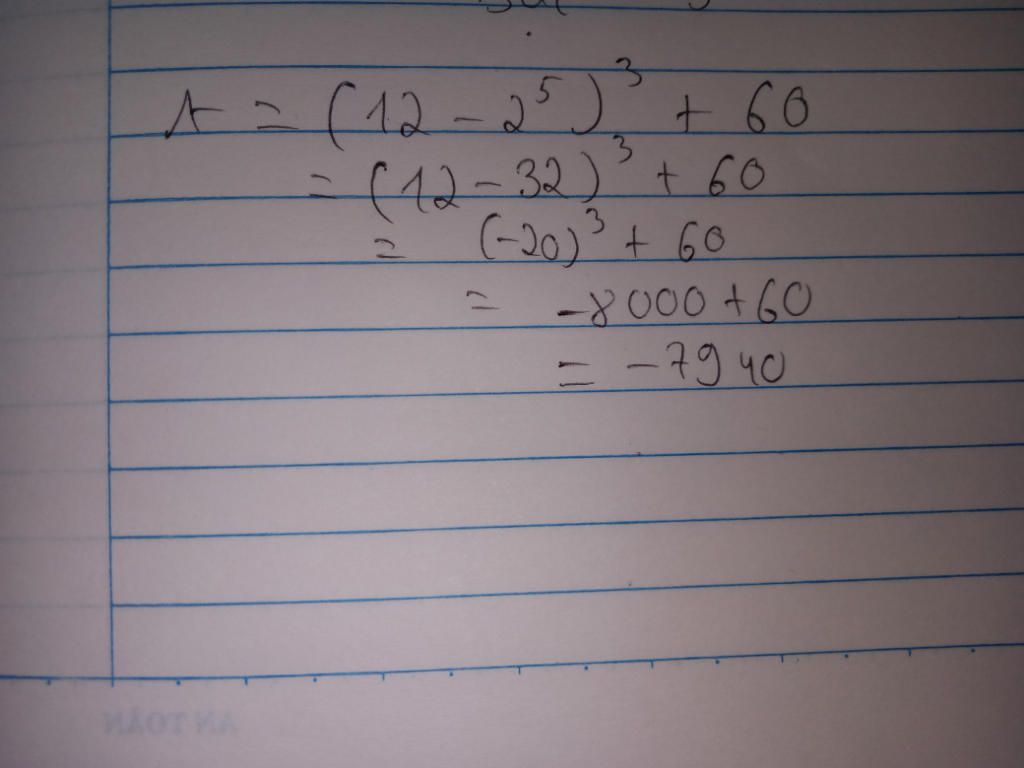 A = (12 - 2⁵)³ + 60
= (12 - 32)³ + 60
= (-20)³ + 60
= -8000 + 60
= -7940